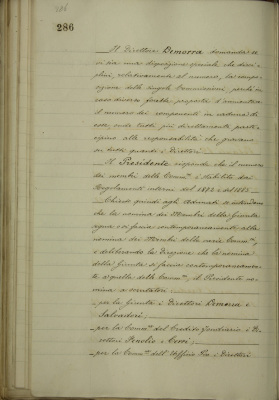 286
Il Direttore Demorra domanda se
vi sia una disposizione speciale che disci-
plini, relativamente al numero, la compo-
sizione delle singole Commissioni, perché in
caso diverso farebbe proposta d'aumentare
il numero dei componenti in caduna di
esse, onde tutti più direttamente parte-
cipino alle responsabilità che gravano
su tutti quanti i Direttori.
Il Presidente risponde che il numero
dei membri delle Commni è stabilito dai
Regolamenti interni del 1882 e del 1885.
Chiede quindi agli adunati se intendono
che la nomina dei Membri della Giunta
si faccia contemporaneamente alla
nomina dei Membri delle varie Commni,
e deliberando la Direzione che la nomina
della Giunta si faccia contemporaneamen-
te a quella delle Commni, il Presidente no-
mina a scrutatori:
per la Giunta i Direttori Demorra e
Salvadori;
per la Commne del Credito fondiario i Di-
rettori
e Cossi;
per la Commne dell'Ufficio Pio i Direttori